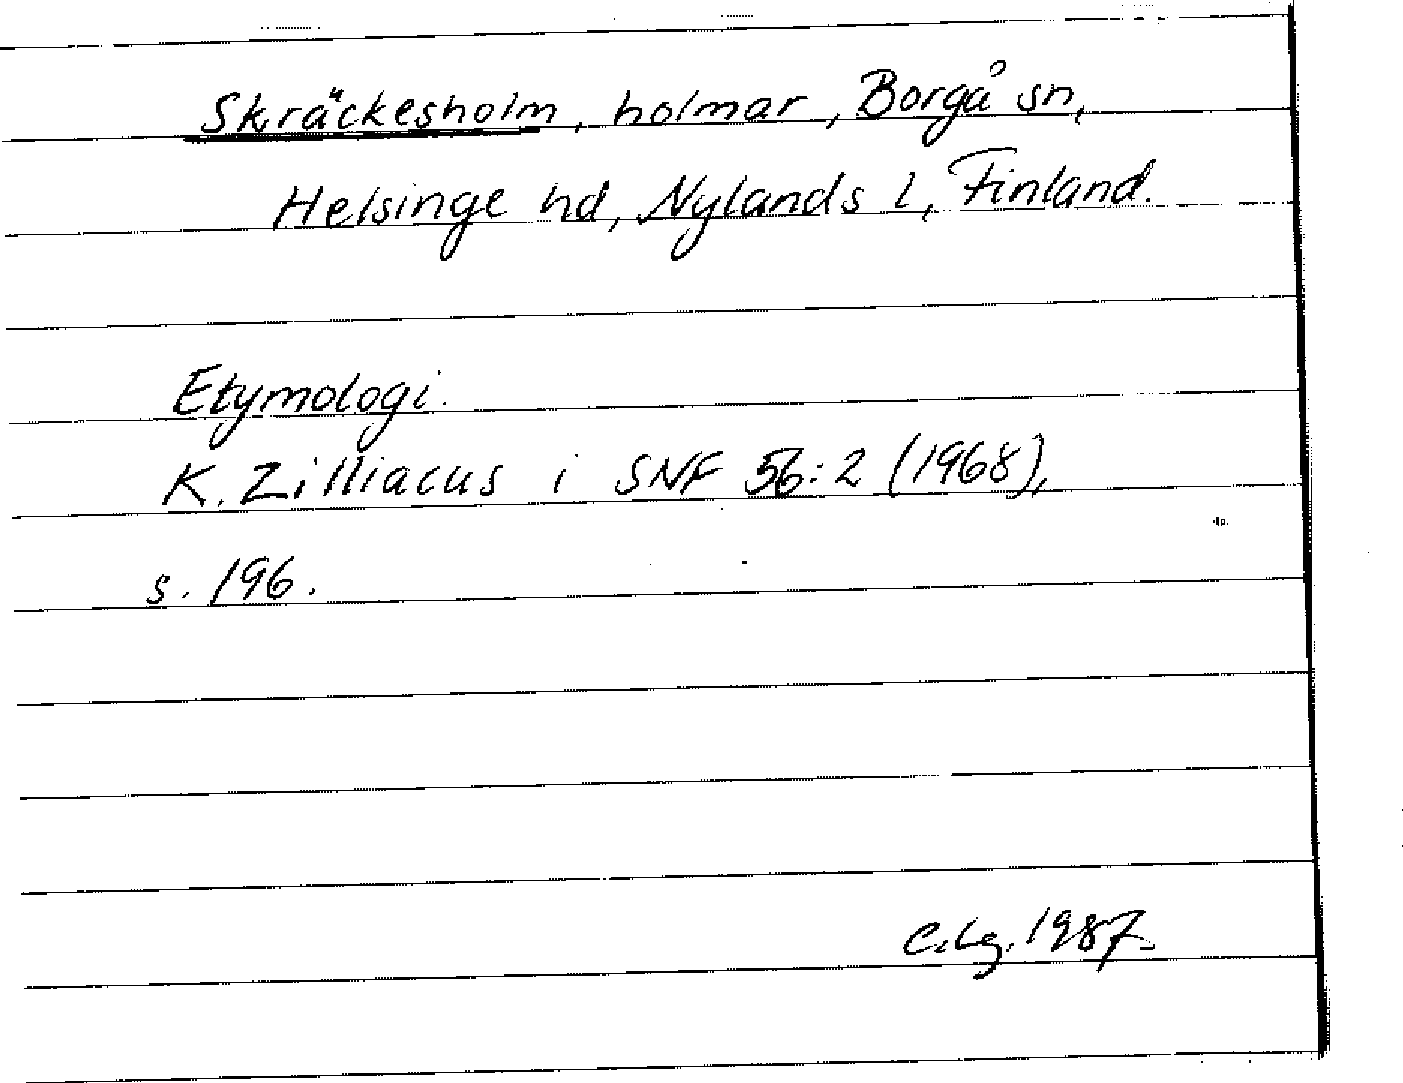 Skräckesholm, holmar, Borgå sn,
Helsinge hd, Nylands l, Finland.
Etymologi.
K. Zilliacus i SNF 56:2 (1968),
s. 196.
C.Lg. 1987.